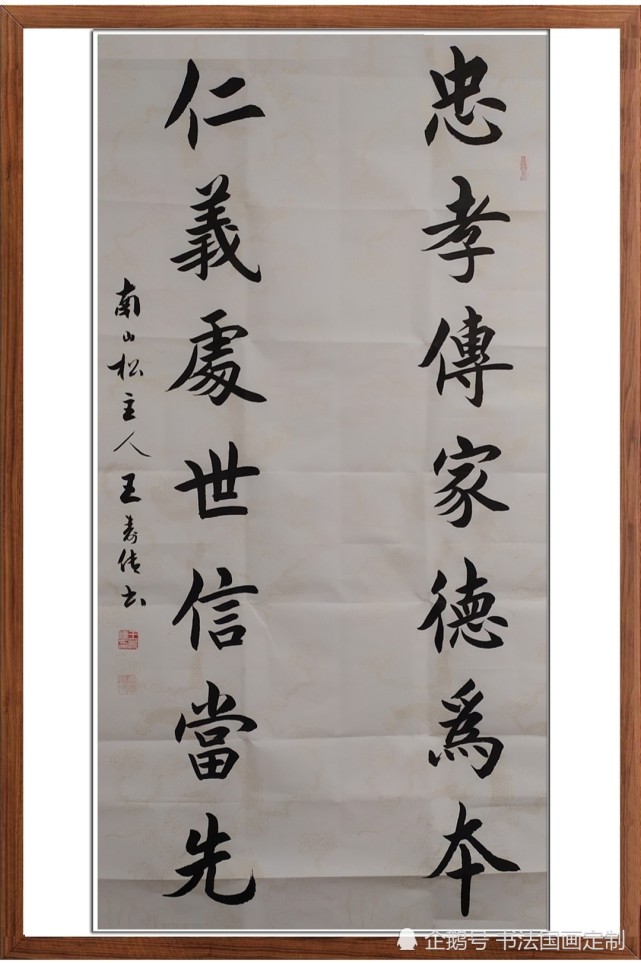 忠孝傳家德為本
仁義處世信當先
南山松主人王壽倩书
企鹅号 书法国画定制